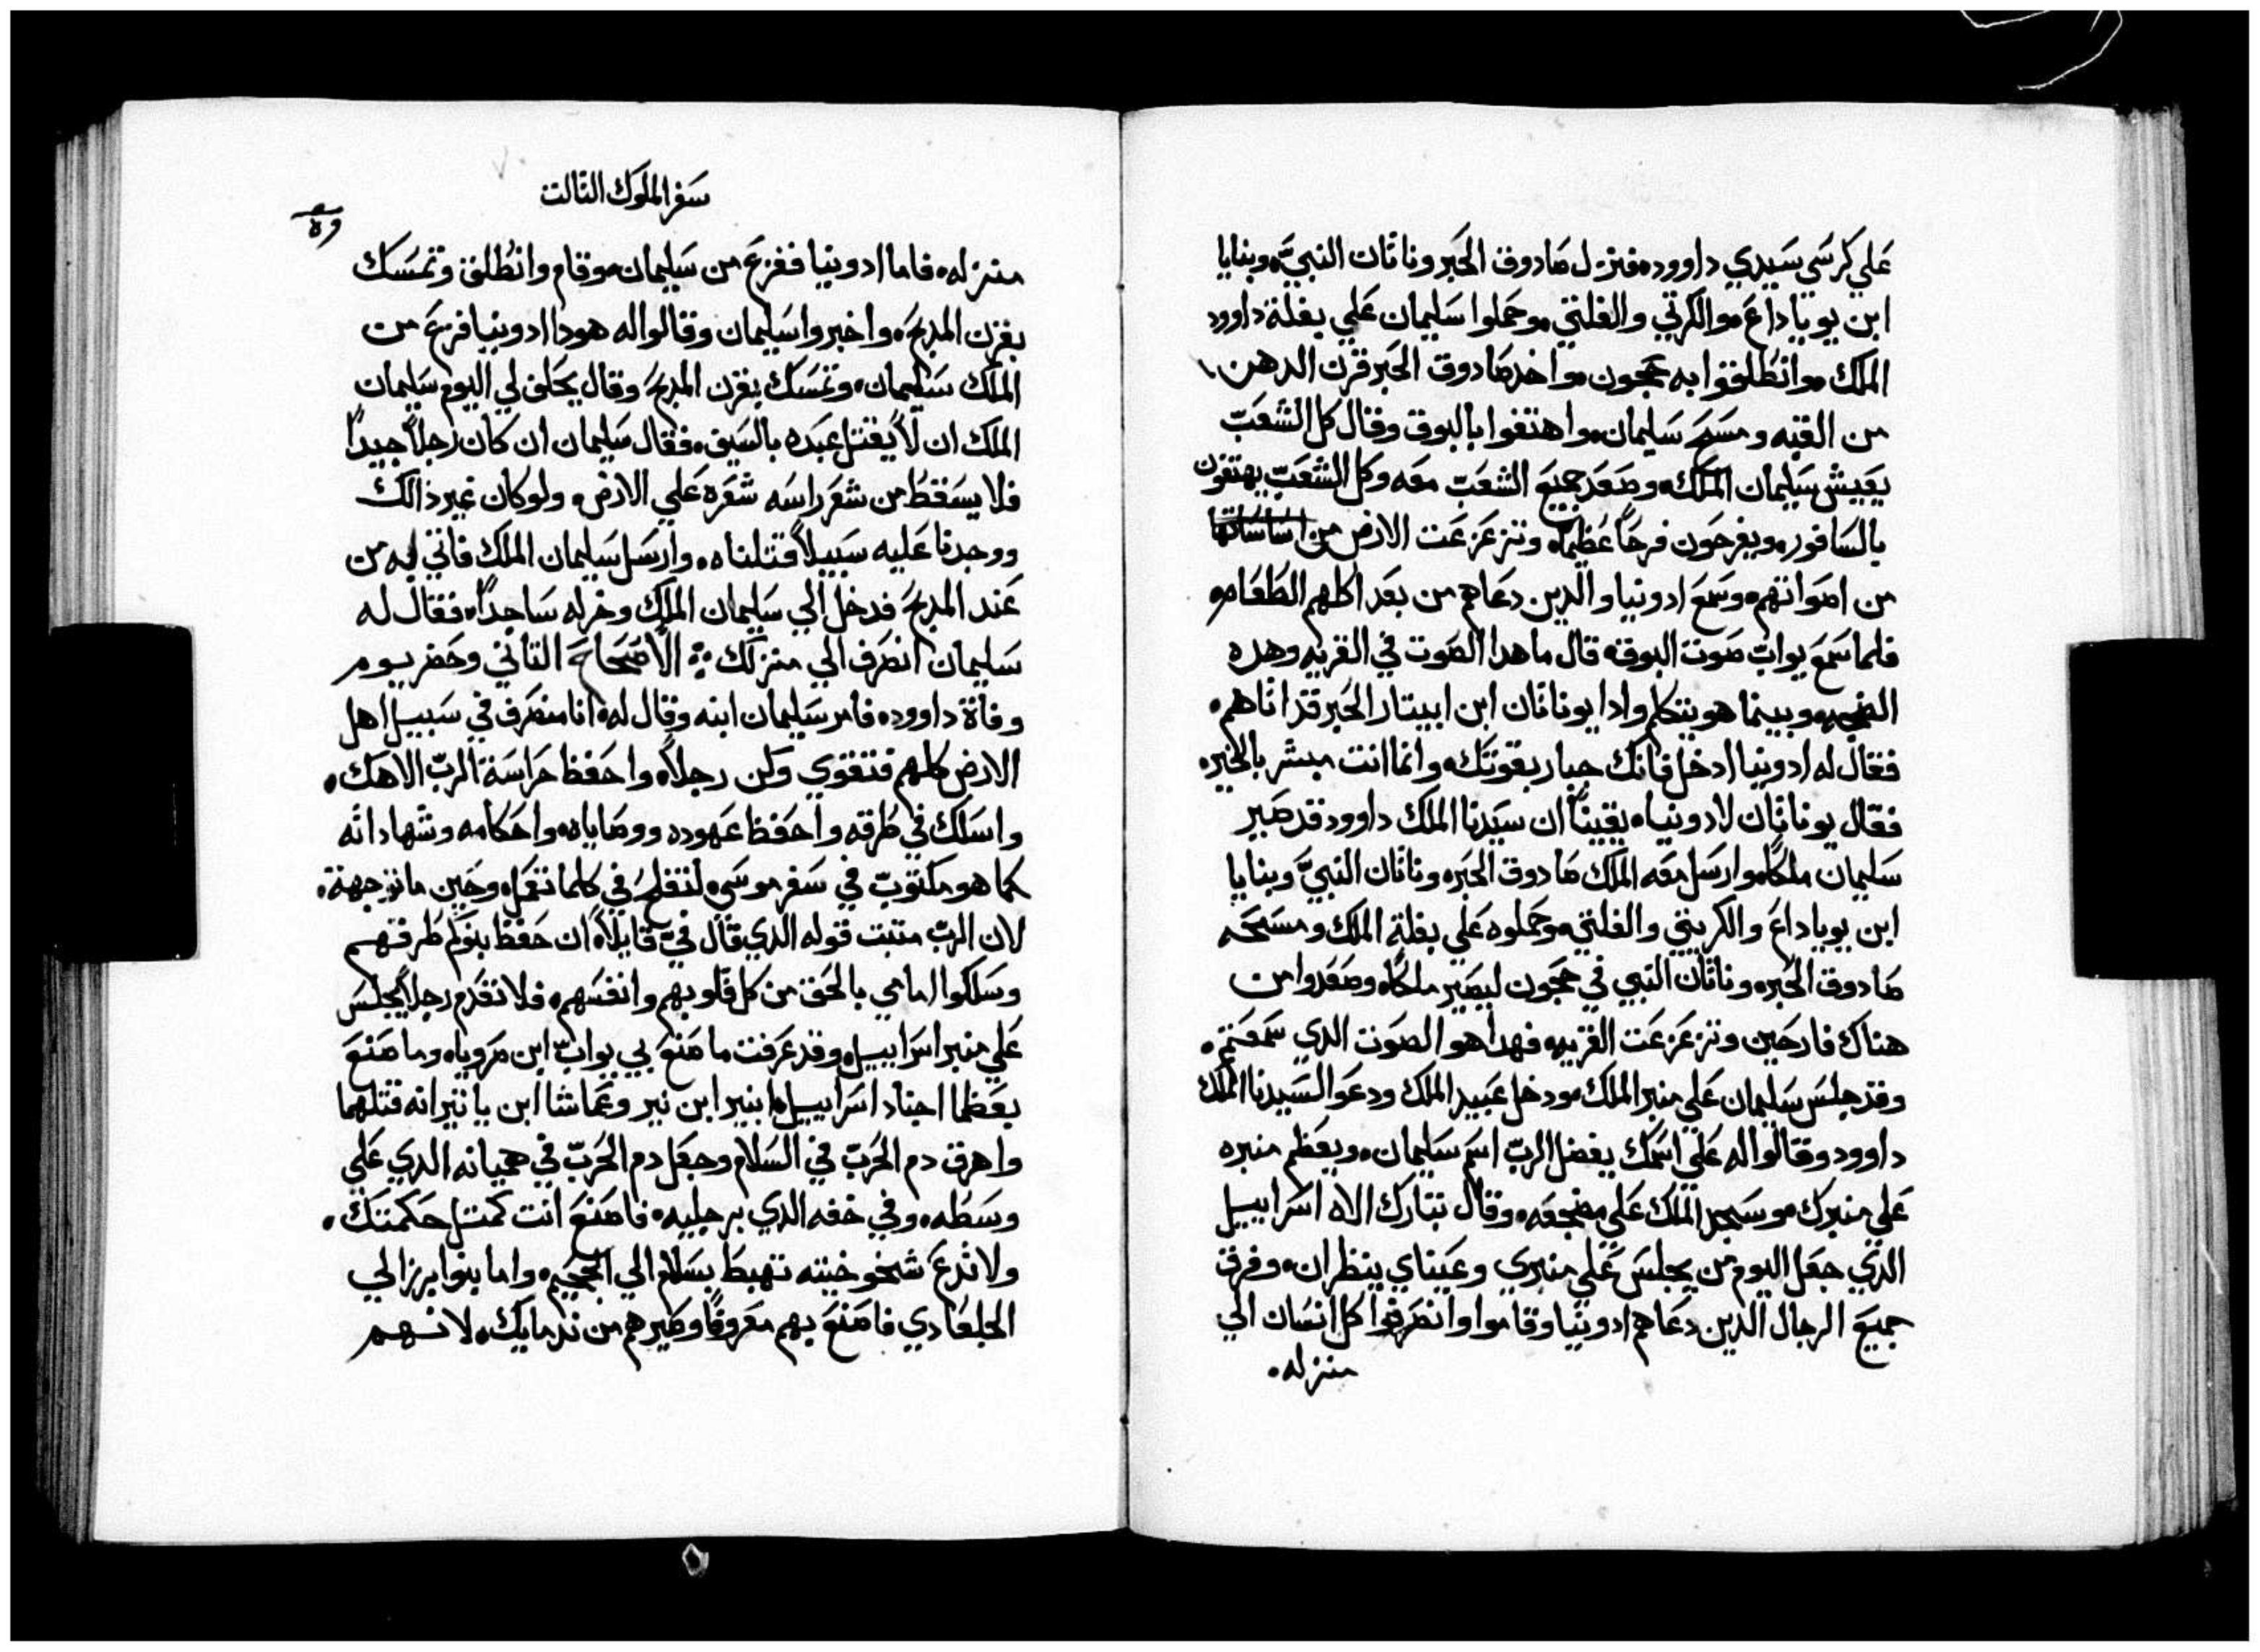 علي كرسي سيدي داوود، فنزل صادوق الحبر وناتان النبي، وبنايا
ابن يوياداع، والكرتي والفلتي، وحملوا سليمان علي بغلة داوود
الملك، وانطلقوا به جيحون، واخد صادوق الحبر قرن الدهن
من القبه ومسح سليمان، واهتفوا بالبوق وقال كل الشعب
يعيش سليمان الملك، وصعد جميع الشعب معه وكل الشعب يهتفون
بالسافور، ويفرحون فرحاً عظيماً، وتزعزعت الارض من اساساتها
من اصواتهم، وسمع ادونيا والدين دعاهم من بعد اكلهم الطعام،
فلما سمع يواب صوت البوق، قال ما هدا الصوت في القريه وهده
الضجه، وبينما هو يتكلم وادا يوناثان ابن ابيتار الحبر قد اتاهم،
فقال له ادونيا ادخل فانك جبار بقوتك، وانما انت مبشر بالخير،
فقال يوناثان لادونيا، يقيناً ان سيدنا الملك داوود قد صير
سليمان ملكاً، وارسل معه الملك صادوق الحبر، وناتان النبي وبنايا
ابن يوياداع والكريتي والفلتي، وحملوه علي بغلة الملك ومسحه
صادوق الحبر، وناتان النبي في جيحون ليصير ملكاً، وصعدوا من
هناك فارحين وتزعزعت القريه، فهدا هو الصوت الدي سمعتم،
وقد جلس سليمان علي منبر الملك، ودخل عبيد الملك ودعوا لسيدنا الملك
داوود وقالوا له علي اسمك يفضل الرب اسم سليمان، ويعظم منبره
علي منبرك، وسجد الملك علي مضجعه، وقال تبارك الاه اسراييل
الدي جعل اليوم من يجلس علي منبري وعيناي ينظران، وفرق
جميع الرجال الدين دعاهم ادونيا وقاموا وانصرفوا كل انسان الي
منزله،
سفر الملوك التالت
منزله، فاما ادونيا ففزع من سليمان، وقام وانطلق وتمسك
بقرن المدبح، واخبروا سليمان وقالوا له هودا ادونيا فزع من
الملك سليمان، وتمسك بقرن المدبح وقال يحلف لي اليوم سليمان
الملك ان لا يقتل عبده بالسيف، فقال سليمان ان كان رجلاً جيداً
فلا يسقط من شعر راسه شعره علي الارض، ولو كان غير ذالك
ووجدنا عليه سبيلاً قتلناه، وارسل سليمان الملك فاتي به من
عند المدبح فدخل الي سليمان الملك وخر له ساجداً، فقال له
سليمان انصرف الي منزلك ÷ الاصحاح التاني وحضر يوم
وفاة داوود، فامر سليمان ابنه وقال له، انا منصرف في سبيل اهل
الارض كلهم فتقوي وكن رجلاً، واحفظ حراسة الرب الاهك،
واسلك في طرقه واحفظ عهوده ووصاياه، واحكامه وشهاداته
كما هو مكتوب في سفر موسي، لتفلح في كلما تعمل، وحين ما توجهة،
لان الرب متبت قوله الدي قال في قايلاً، ان حفظ بنوك طرقهم
وسلكوا امامي بالحق من كل قلوبهم وانفسهم، فلا تقدم رجلاً يجلس
علي منبر اسراييل، وقد عرفت ما صنع بي يواب ابن صرويا، وما صنع
بعظما اجناد اسراييل، ابنير ابن نير وعماشا ابن ياتير انه قتلهما
واهرق دم الحرب في السلام وجعل دم الحرب في هميانه الدي علي
وسطه، وفي خفه الدي برجليه، فاصنع انت كمتل حكمتك،
ولا تدع شيخوخيته تهبط بسلام الي الجحيم، واما بنوا برزالي
الجلعادي فاصنع بهم معروفاً وصيرهم من ندمايك، لانهم